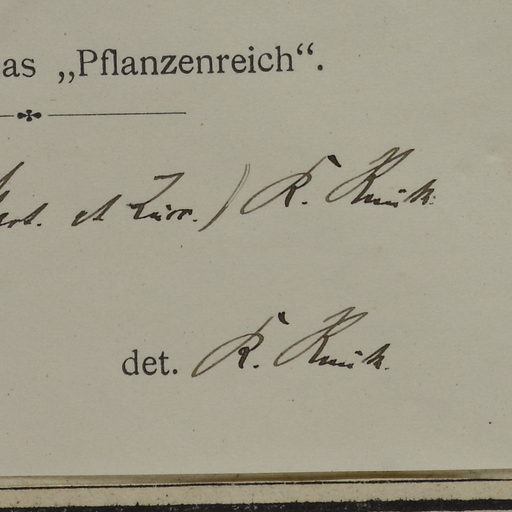 as „Pflanzenreich“.
et Zucc.) R. Knuth.
det. R. Knuth.